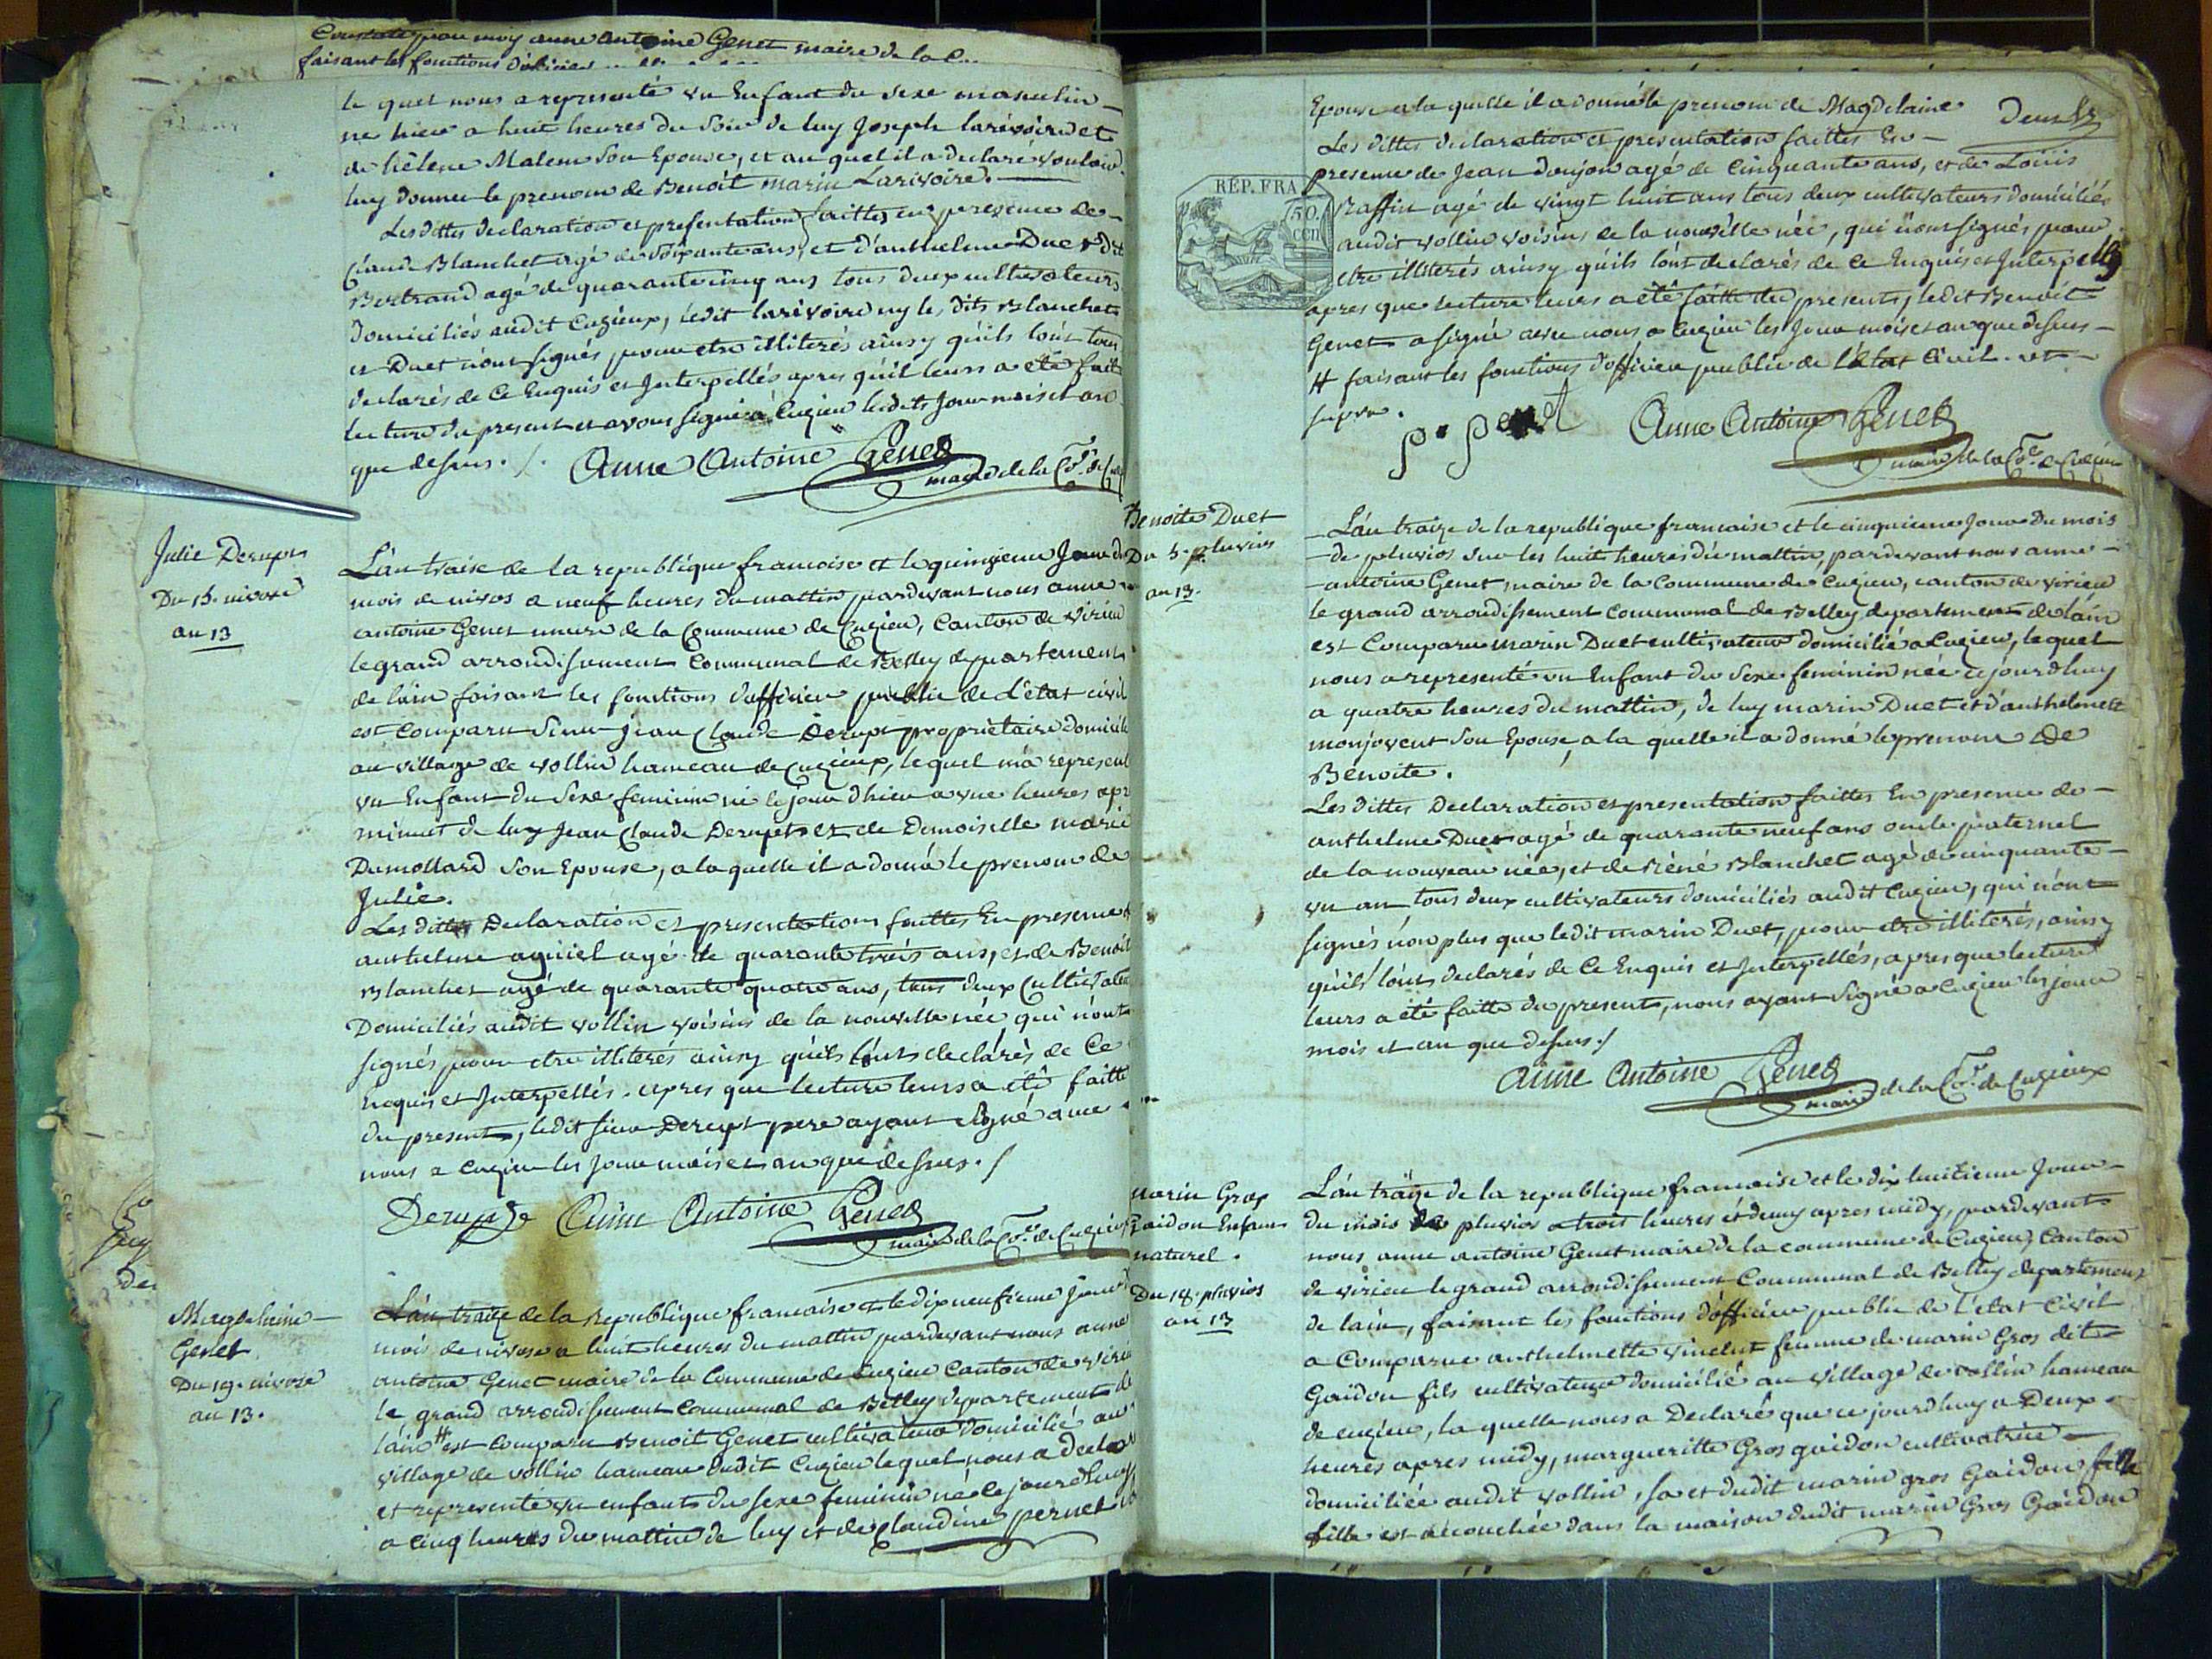 Constatée par moy anne antoine Genet maire de la C
faisant les fonctions d'officier
le quel nous a representé un Enfant du Sexe masculin
ne hier a huit heures du Soir de luy Joseph larivoire et
de hélene Malem Son Epouse, et au quel il a declaré vouloir
luy donner le prenom de Benoit marin Larivoire.
Les dittes declaration et presentation faittes en presence de
Claude Blanchet agé de soixante ans, et d'anthelme Duet dit
Bertrand agé de quarante cinq ans tous deux cultivateurs
domiciliés audit Cuzieux, ledit larivoire ny les dits Blanchet
et Duet n'ont signés pour etre illiterés ainsy qu'ils l'ont tous
declarés de Ce Enquis et Interpellés apres qu'il leurs a été fait
lecture du present et avons signé a Cuzieu lesdits Jour mois et an
que dessus. /. Anne Antoine Genet
maire de la Co.e de Cuz
Julie Derupt
Du 15. nivose
an 13
L'an traise de la republique francoise et le quinzieme Jour du
mois de nivos a neuf heures du mattin pardevant nous anne
antoine Genet maire de la Commune de Cuzieu, Canton de Virieu
le grand arrondissement Communal de Belley departement
de l'ain faisant les fonctions d'officier public de L'état civil
est Comparu Sieur Jean Claude Derupt propriètaire domicilié
au village de vollin hameau de Cuzieux, lequel m'a represent
un Enfant du Sexe feminin né le jour d'hier a une heures apr
minuit de luy Jean Claude Derupt et de Demoiselle marie
Dumollard Son Epouse, a la quelle il a donné le prenom de
Julie.
Les dittes Declaration et presentation faittes En presence d
anthelme agniel agé de quarante trois ans, et de Benoit
Blanchet agé de quarante quatre ans, tous deux Cultivateu
Domiciliés audit vollin voisins de la nouvelle née qui n'ont
signés pour etre illiterés ainsy qu'ils l'onts declarés de Ce
Enquis et Interpellés. apres que lecture leurs a été faitte
du present, ledit sieur Derupt pere ayant Signé avec
nous a Cuzieu les Jour mois et an que dessus. /
Derupt Anne Antoine Genet
maire de la Co.e de Cuzieu
Magdelaine
Genet
Du 19. nivose
an 13.
L'an traize de la Republique francaise et le dix neufieme Jour d
mois de nivose a huit heures du mattin pardevant nous anne
antoine Genet maire de la Commune de Cuzieu Canton de virie
le grand arrondissement Communal de Belley departement de
l'ain # est Comparu Benoit Genet cultivateur domicilié au
village de vollin hameau dudit Cuzieu lequel nous a declar
et representé un enfant du sexe feminin né le jourdhuy
a Cinq heures du mattin de luy et de Claudine pernet
Epouse a la quelle il a donné le prenom de Magdelaine
Les dittes declaration et presentation faittes En
presence de Jean donjon agé de Cinquante ans, et de Loüis
RÉP. FRA
50.
cen
Raffin agé de vingt huit ans tous deux cultivateurs domiciliés
audit vollin voisins de la nouvelle née, qui n'ont signés pour
etre illiterés ainsy qu'ils l'ont declarés de Ce Enquis et Interpellés
apres que lecture leurs a été faitte du present, ledit Benoit
Genet a signé avec nous a Cuzieu les Jour mois et an que dessus
# faisant les fonctions d'officier public de l'état Civil.
Anne Antoine Genet
maire de la Co.e de Cuzieu
Benoite Duet
Du 5. pluvios
an 13.
L'an traize de la republique francaise et le cinquieme Jour Du mois
de pluvios sur les huit heures du mattin, pardevant nous anne
antoine Genet, maire de la Commune de Cuzieu, canton de virieu
le grand arrondissement Communal de Belley departement de l'ain
est Comparu marin Duet cultivateur domicilié a Cuzieu, lequel
nous a representé un Enfant du Sexe feminin née ce jourdhuy
a quatre heures du mattin, de luy marin Duet et d'anthelmette
monjovent Son Epouse, a la quelle il a donné le prenom de
Benoite.
Les dittes Declaration et presentation faittes En presence de
anthelme Duet agé de quarante neuf ans oncle paternel
de la nouveau née, et de Réné Blanchet agé de cinquante
un an tous deux cultivateurs domiciliés audit Cuzieu, qui n'ont
signés non plus que ledit marin Duet, pour etre illiterés, ainsy
qu'ils l'ont declarés de Ce Enquis et Interpellés, apres que lecture
leurs a été faitte du present, nous ayant Signé a Cuzieu les jour
mois et an que dessus. /
anne Antoine Genet
maire de la Co.e de Cuzieux
marin Gros
Gaidon Enfant
naturel.
Du 18. pluvios
an 13
L'an traize de la republique francoise et le dix huitieme Jour
du mois de pluvios a trois heures et demy apres midy, pardevant
nous anne antoine Genet maire de la commune de Cuzieu, Canton
de virieu le grand arrondissement Communal de Belley departement
de l'ain, faisant les fonctions d'officier public de l'état Civil
a Comparue anthelmette vincent femme de marin Gros dit
Gaïdon fils cultivateur domicilié au village de vollin hameau
de cuzieu, la quelle nous a Declaré que ce jourdhuy a Deux
heures apres midy, margueritte Gros gaidon cultivatrice
domiciliée audit vollin, sa et dudit marin gros Gaidon fille
fille est accouchée dans la maison dudit marin Gros Gaidon